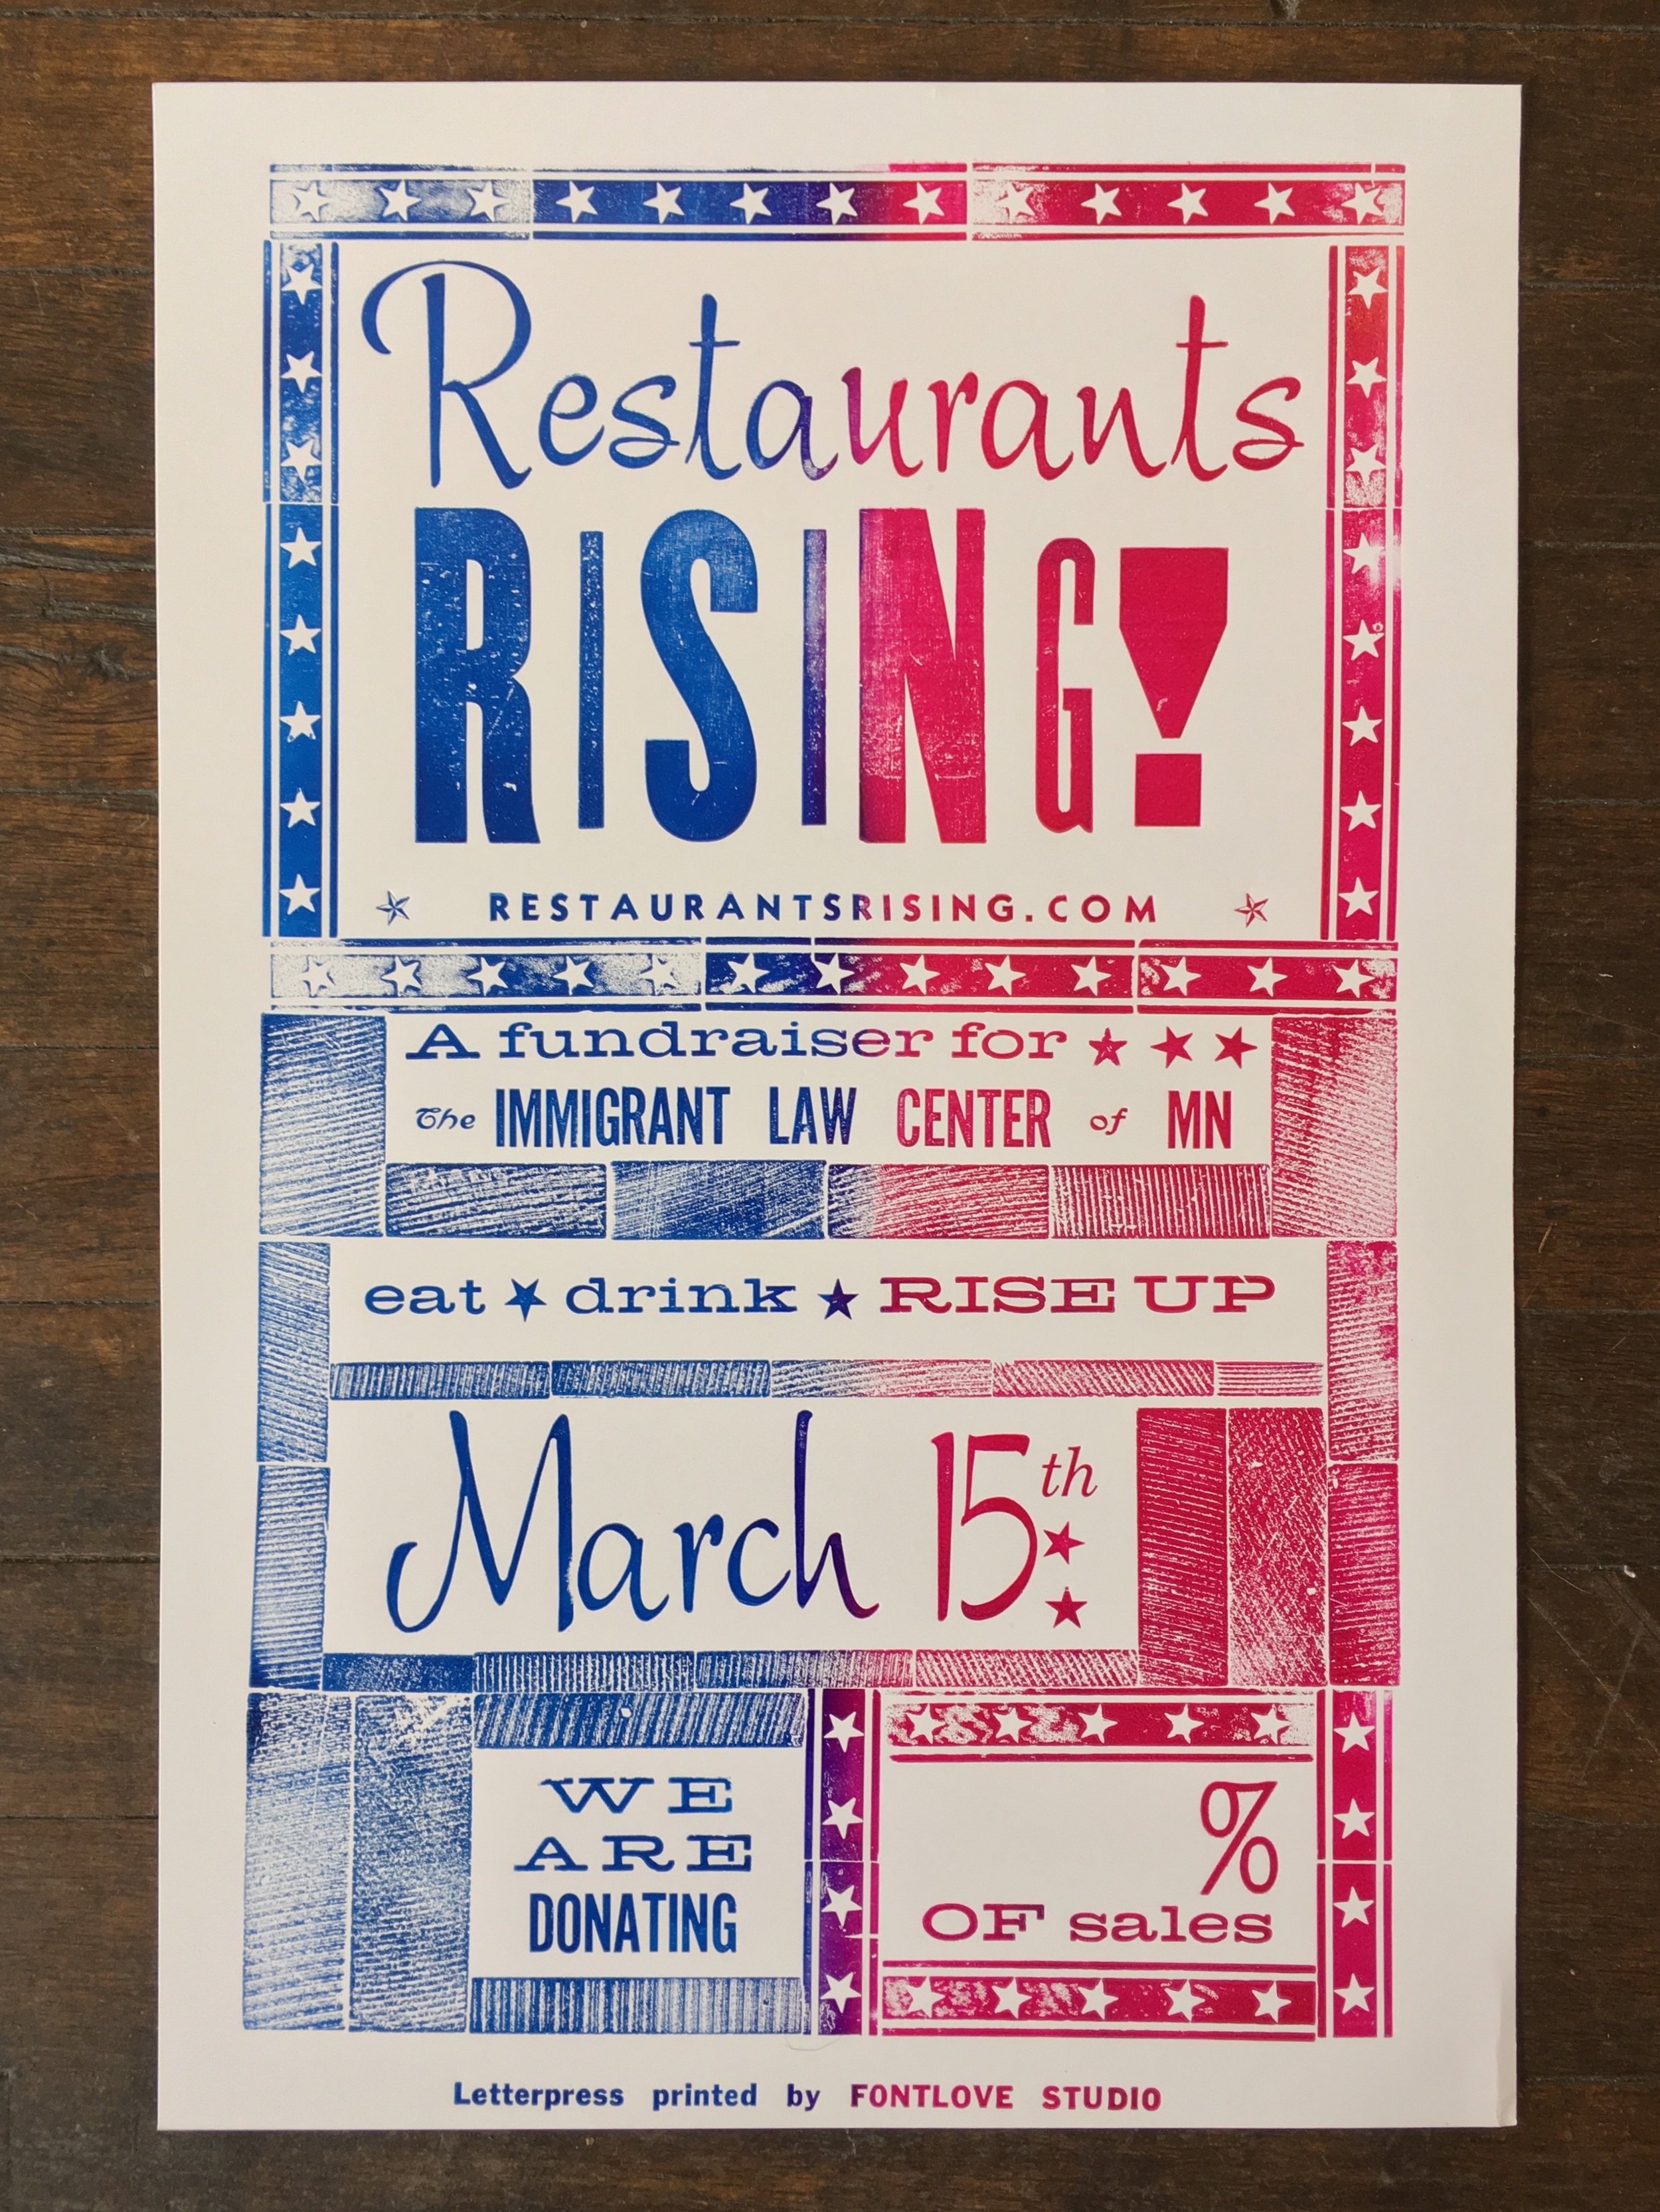 Restaurants
RISING!
RESTAURANTSRISING.COM
A fundraiser for
The IMMIGRANT LAW CENTER of MN
eat ★ drink ★ RISE UP
March 15th
WE
ARE
DONATING
%
OF sales
Letterpress printed by FONTLOVE STUDIO